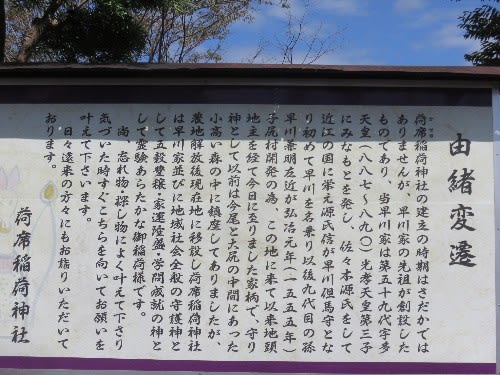 由緒変遷
荷席稲荷神社の建立の時期はさだかでは
ありませんが、早川家の先祖が創設した
ものであり、当早川家は第五十九代宇多
天皇（八八七〜八九〇）光孝天皇第三子
にみなもとを発し、佐々木源氏をして
近江の国に栄え源氏信が早川但馬守とな
り初めて早川を名乗り以後九代目の孫
早川兼明左近が弘治元年（一五五五年）
子尻村開発の為、この地に来て以来地頭
地主を経て今日に至りました家柄で、守り
神として以前は今尾と大尻の中間にあった
小高い森の中に鎮座してありましたが、
農地解放後現在地に移設し荷席稲荷神社
は早川家並びに地域社会全般の守護神と
して五穀豊穣・家運隆盛・学問成就の神と
して霊験あらたかな御稲荷様です。
尚、忘れ物・探し物によく叶えて下さり
気づいた時すぐこちらを向いてお願いを
叶えて下さいます。
日々遠来の方々にもお詣りいただいて
おります。
荷席稲荷神社